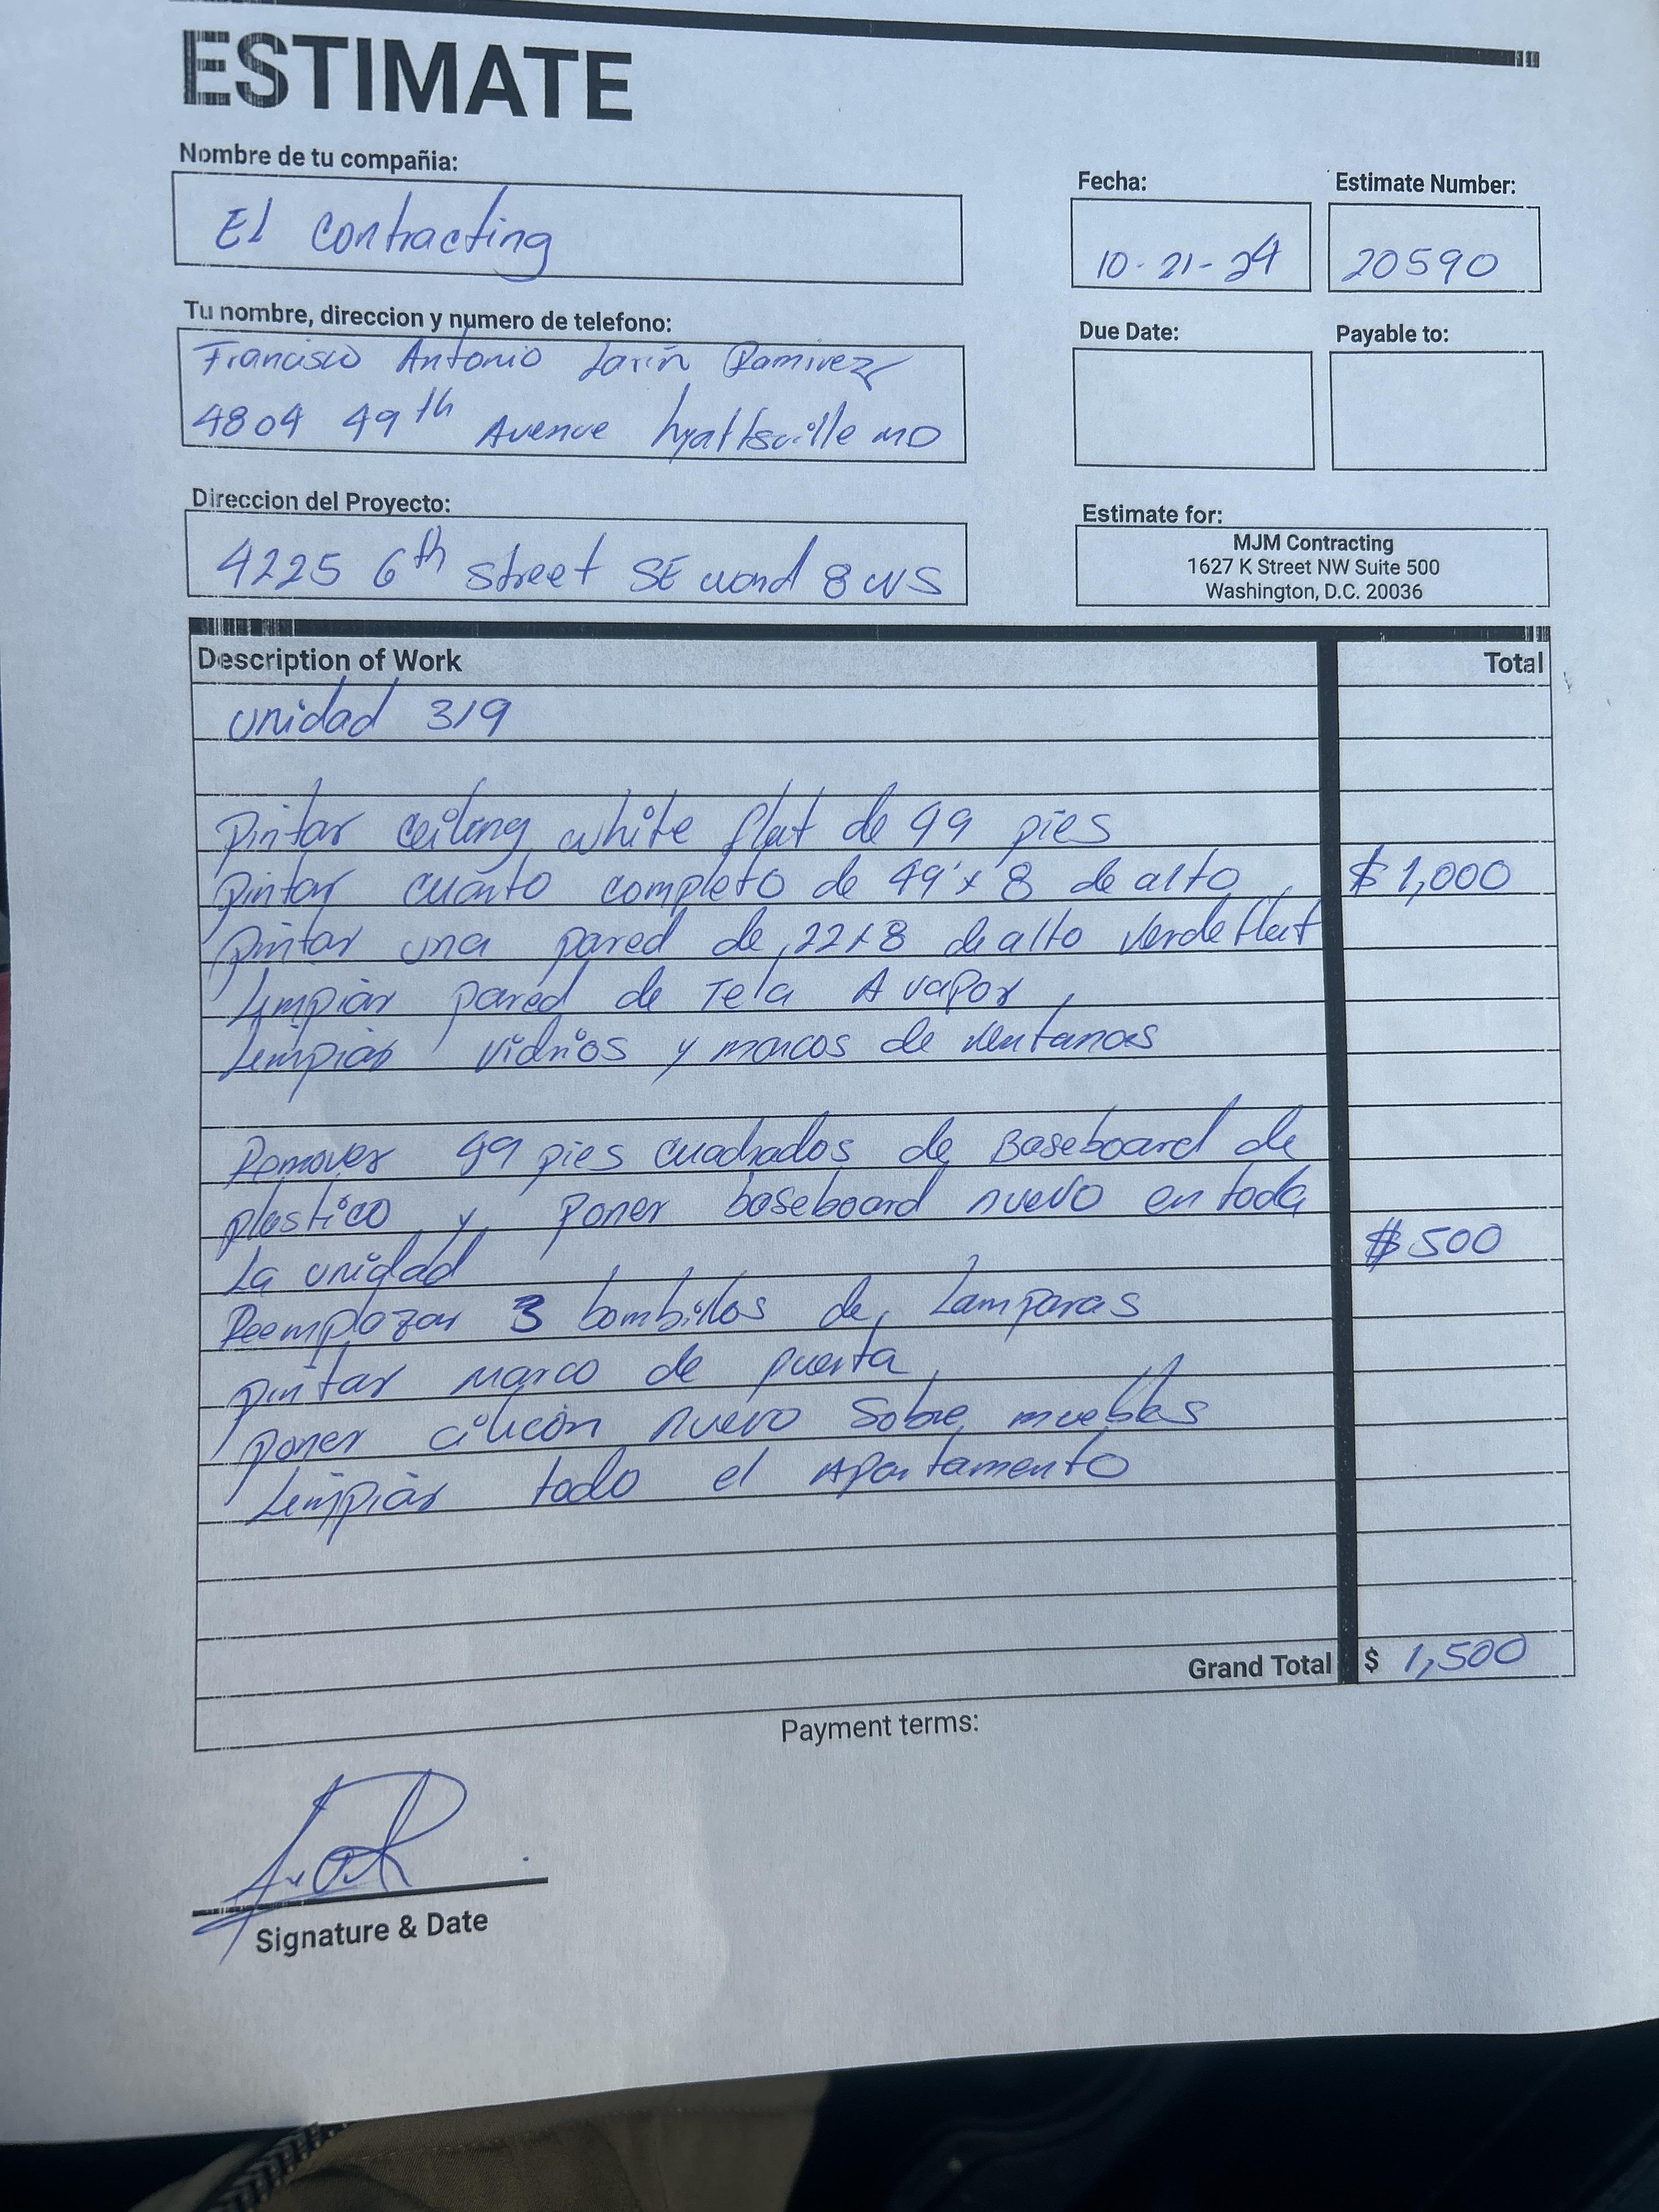 ESTIMATE
Nombre de tu compañia:
El contracting
Fecha:
10-21-24
Estimate Number:
20590
Tu nombre, direccion y numero de telefono:
Francisco Antonio Larin Ramirez
4804 49th Avenue hyattsville MD
Due Date:
Payable to:
Direccion del Proyecto:
4225 6th street SE 8
Estimate for:
MJM Contracting
1627 K Street NW Suite 500
Washington, D.C. 20036
Description of Work
Total
unidad 319
Pintar ceiling white flat de 49 pies
pintar cuarto completo de 49'x 8 de alto $ 1,000
pintar una pared de 22x8 de alto verde flat
Limpiar pared de Tela A vapor
Limpiar vidrios y marcos de ventanas
Remover 49 pies cuadrados de Baseboard de
plastico y poner baseboard nuevo en toda
La unidad $ 500
Reemplazar 3 bombillos de Lamparas
pintar marco de puerta
poner cilicon nuevo sobre muebles
Limpiar todo el Apartamento
Grand Total $ 1,500
Payment terms:
Signature & Date